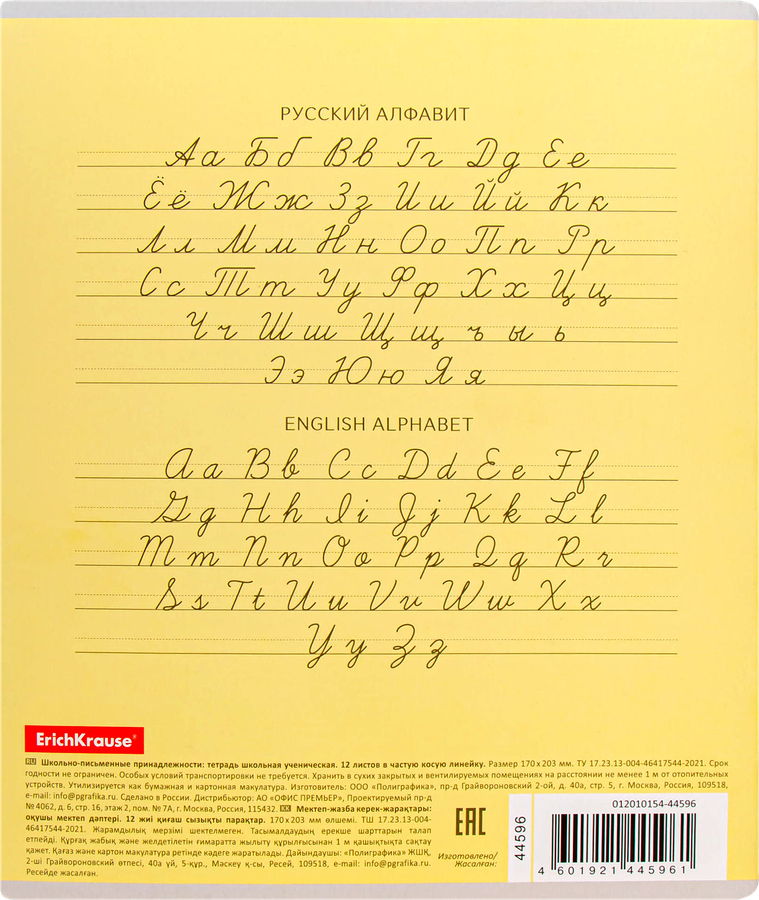 РУССКИЙ АЛФАВИТ
Аа Бб Вв Гг Дд Ее
Ёё Жж Зз Ии Йй Кк
Лл Мм Нн Оо Пп Рр
Сс Тт Уу Фф Хх Цц
Чч Шш Щщ ъ ы ь
Ээ Юю Яя
ENGLISH ALPHABET
Aa Bb Cc Dd Ee Ff
Gg Hh Ii Jj Kk Ll
Mm Nn Oo Pp Qq Rr
Ss Tt Uu Vv Ww Xx
Yy Zz
ErichKrause®
RU Школьно-письменные принадлежности: тетрадь школьная ученическая. 12 листов в частую косую линейку. Размер 170 x 203 мм. ТУ 17.23.13-004-46417544-2021. Срок
годности не ограничен. Особых условий транспортировки не требуется. Хранить в сухих закрытых и вентилируемых помещениях на расстоянии не менее 1 м от отопительных
устройств. Утилизируется как бумажная и картонная макулатура. Изготовитель: ООО «Полиграфика», пр-д Грайвороновский 2-ой, д. 40а, стр. 5, г. Москва, Россия, 109518,
e-mail: info@pgrafika.ru. Сделано в России. Дистрибьютор: АО «ОФИС ПРЕМЬЕР», Проектируемый пр-д
№ 4062, д. 6, стр. 16, этаж 2, пом. № 7А, г. Москва, Россия, 115432. KK Мектеп-жазба керек-жарақтары:
оқушы мектеп дәптері. 12 жиі қиғаш сызықты парақтар. 170 x 203 мм өлшемі. ТШ 17.23.13-004-
46417544-2021. Жарамдылық мерзімі шектелмеген. Тасымалдаудың ерекше шарттарын талап
етпейді. Құрғақ жабық және желдетілетін ғимаратта жылыту құрылғысынан 1 м қашықтықта сақтау
қажет. Қағаз және картон макулатура ретінде кәдеге жаратылады. Дайындаушы: «Полиграфика» ЖШҚ,
2-ші Грайвороновский өтпесі, 40а үй, 5-құр., Мәскеу қ-сы, Ресей, 109518, e-mail: info@pgrafika.ru.
Ресейде жасалған.
EAC
Изготовлено/
Жасалған:
44596
012010154-44596
4 601921 445961